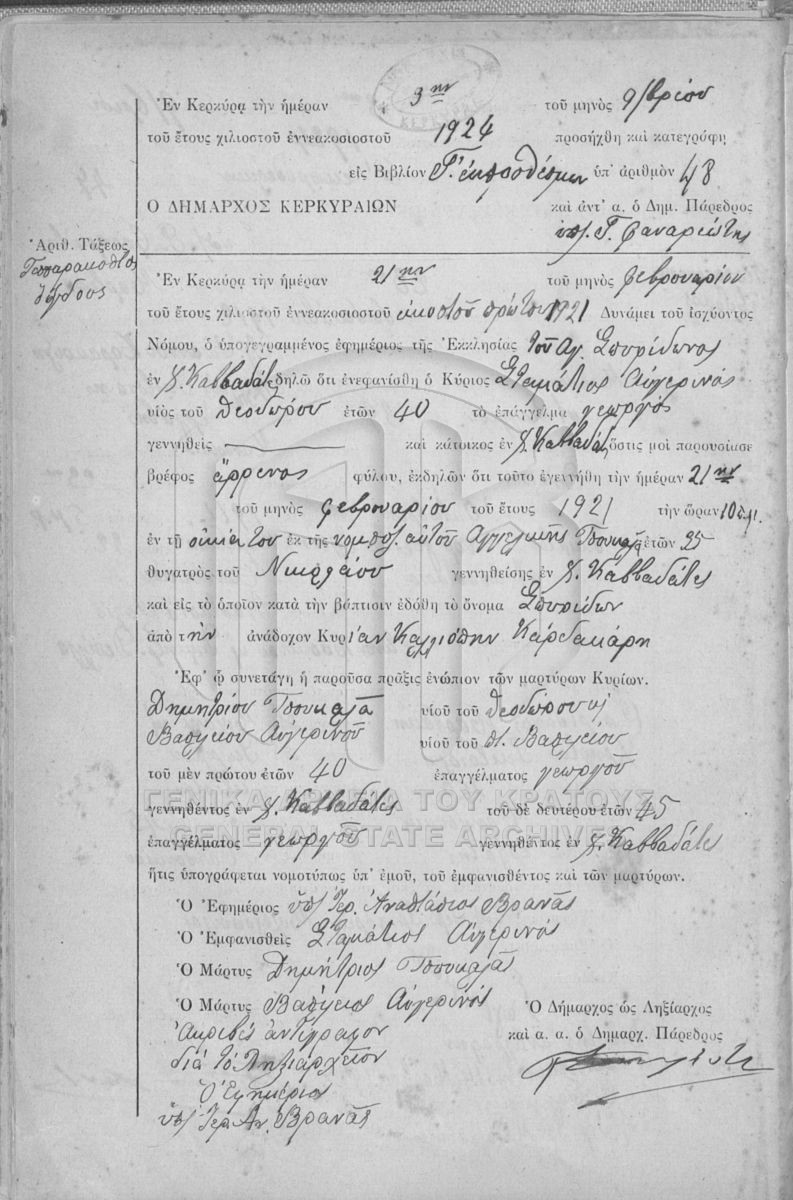 Ἐν Κερκύρᾳ τὴν ἡμέραν 3ην τοῦ μηνὸς 9/βρίου
τοῦ ἔτους χιλιοστοῦ ἐννεακοσιοστοῦ 1924 προσήχθη καὶ κατεγράφη
εἰς Βιβλίον Γ. ἐκπροθέσμων ὑπ' ἀριθμὸν 48
Ο ΔΗΜΑΡΧΟΣ ΚΕΡΚΥΡΑΙΩΝ καὶ ἀντ' α. ὁ Δημ. Πάρεδρος
ὑπ. Γ. Φαναριώτης
Ἀριθ. Τάξεως
Τεσσαρακοστὸς
ὄγδοος
Ἐν Κερκύρᾳ τὴν ἡμέραν 21ην τοῦ μηνὸς Φεβρουαρίου
τοῦ ἔτους χιλιοστοῦ ἐννεακοσιοστοῦ εἰκοστοῦ πρώτου 1921 Δυνάμει τοῦ ἰσχύοντος
Νόμου, ὁ ὑπογεγραμμένος ἐφημέριος τῆς Ἐκκλησίας τοῦ Αγ. Σπυρίδωνος
ἐν χ. Καββαδάτες δηλῶ ὅτι ἐνεφανίσθη ὁ Κύριος Σταμάτιος Αὐγερινὸς
υἱὸς τοῦ Θεοδώρου ἐτῶν 40 τὸ ἐπάγγελμα γεωργὸς
γεννηθεὶς καὶ κάτοικος ἐν χ. Καββαδάτ. ὅστις μοὶ παρουσίασε
βρέφος ἄρρενος φύλου, ἐκδηλῶν ὅτι τοῦτο ἐγεννήθη τὴν ἡμέραν 21ην
τοῦ μηνὸς Φεβρουαρίου τοῦ ἔτους 1921 τὴν ὥραν 10
ἐν τῇ οἰκίᾳ του ἐκ τῆς νομ. συζ. αὐτοῦ Αγγελικῆς Τσουκαλᾶ ἐτῶν 35
θυγατρὸς τοῦ Νικολάου γεννηθείσης ἐν χ. Καββαδάτες
καὶ εἰς τὸ ὁποῖον κατὰ τὴν βάπτισιν ἐδόθη τὸ ὄνομα Σπυρίδων
ἀπὸ τὴν ἀνάδοχον Κυρίαν Καλλιόπην Κάρδακάρη
Ἐφ' ᾧ συνετάγη ἡ παροῦσα πρᾶξις ἐνώπιον τῶν μαρτύρων Κυρίων.
Δημητρίου Τσουκαλᾶ υἱοῦ τοῦ Θεοδώρου καὶ
Βασιλείου Αὐγερινοῦ υἱοῦ τοῦ π. Βασιλείου
τοῦ μὲν πρώτου ἐτῶν 40 ἐπαγγέλματος γεωργοῦ
γεννηθέντος ἐν χ. Καββαδάτες τοῦ δὲ δευτέρου ἐτῶν 45
ἐπαγγέλματος γεωργοῦ γεννηθέντος ἐν χ. Καββαδάτες
ΓΕΝΙΚΑ ΑΡΧΕΙΑ ΤΟΥ ΚΡΑΤΟΥΣ
GENERAL STATE ARCHIVES
ἥτις ὑπογράφεται νομοτύπως ὑπ' ἐμοῦ, τοῦ ἐμφανισθέντος καὶ τῶν μαρτύρων.
Ὁ Ἐφημέριος ὑπ/ Ἱερ. Ἀναστάσιος Βρανᾶς
Ὁ Ἐμφανισθεὶς Σταμάτιος Αὐγερινός
Ὁ Μάρτυς Δημήτριος Τσουκαλᾶς
Ὁ Μάρτυς Βασίλειος Αὐγερινός
Ὁ Δήμαρχος ὡς Ληξίαρχος
καὶ α. α. ὁ Δημαρχ. Πάρεδρος
Ἀκριβὲς ἀντίγραφον
διὰ τὸ Ληξιαρχεῖον
Ὁ Ἐφημέριος
ὑπ/ Ἱερ. Αν. Βρανᾶς